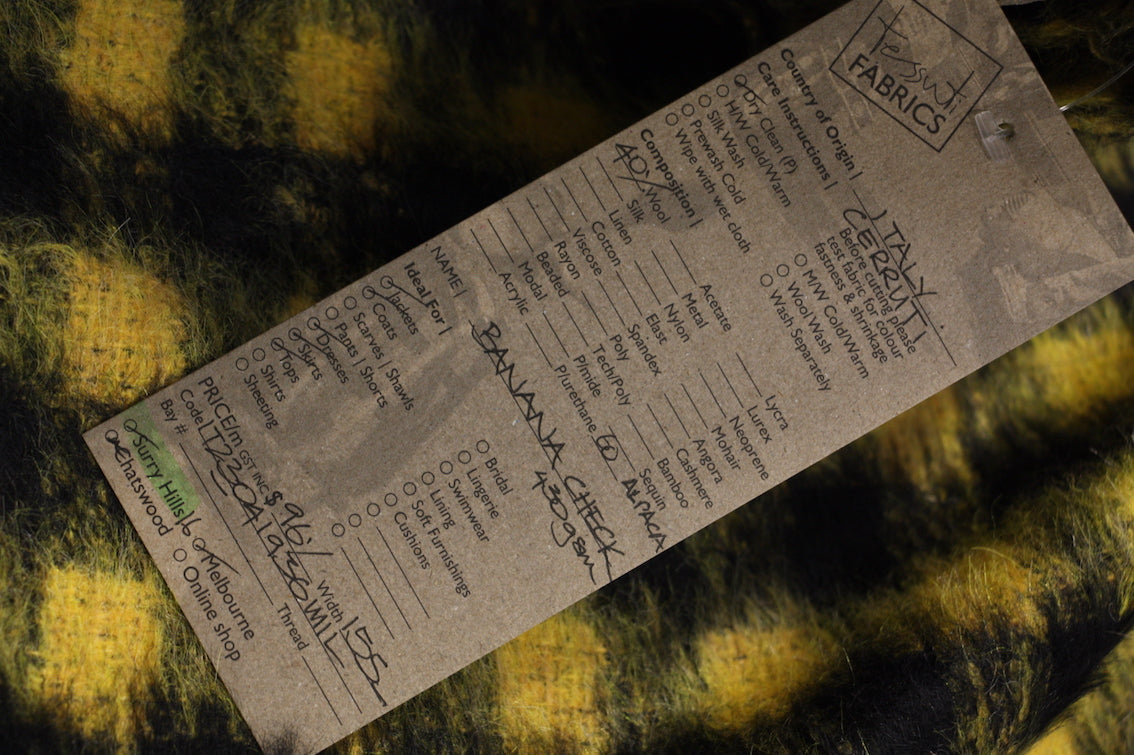 Tessuti
FABRICS
Country of Origin | ITALY
Care Instructions | CERRUTI
Dry Clean (P)
H/W Cold/Warm
Silk Wash
Prewash Cold
Wipe with wet cloth
Before cutting please
test fabric for colour
fastness & shrinkage
M/W Cold/Warm
Wool Wash
Wash Separately
Composition |
40% Wool
Silk
Linen
Cotton
Viscose
Rayon
Beaded
Modal
Acrylic
Acetate
Metal
Nylon
Elast
Spandex
Poly
Tech/Poly
P/mide
P/urethane
Lycra
Lurex
Neoprene
Mohair
Angora
Cashmere
Bamboo
Sequin
60 ALPACA
NAME | BANANA CHECK
430gsm
Ideal For |
Jackets
Coats
Scarves | Shawls
Pants | Shorts
Dresses
Skirts
Tops
Shirts
Sheeting
Bridal
Lingerie
Swimwear
Lining
Soft Furnishings
Cushions
PRICE/m GST INC $ 96'/ Width 155
Code
Bay # Thread
Surry Hills 16 Melbourne
Chatswood Online shop